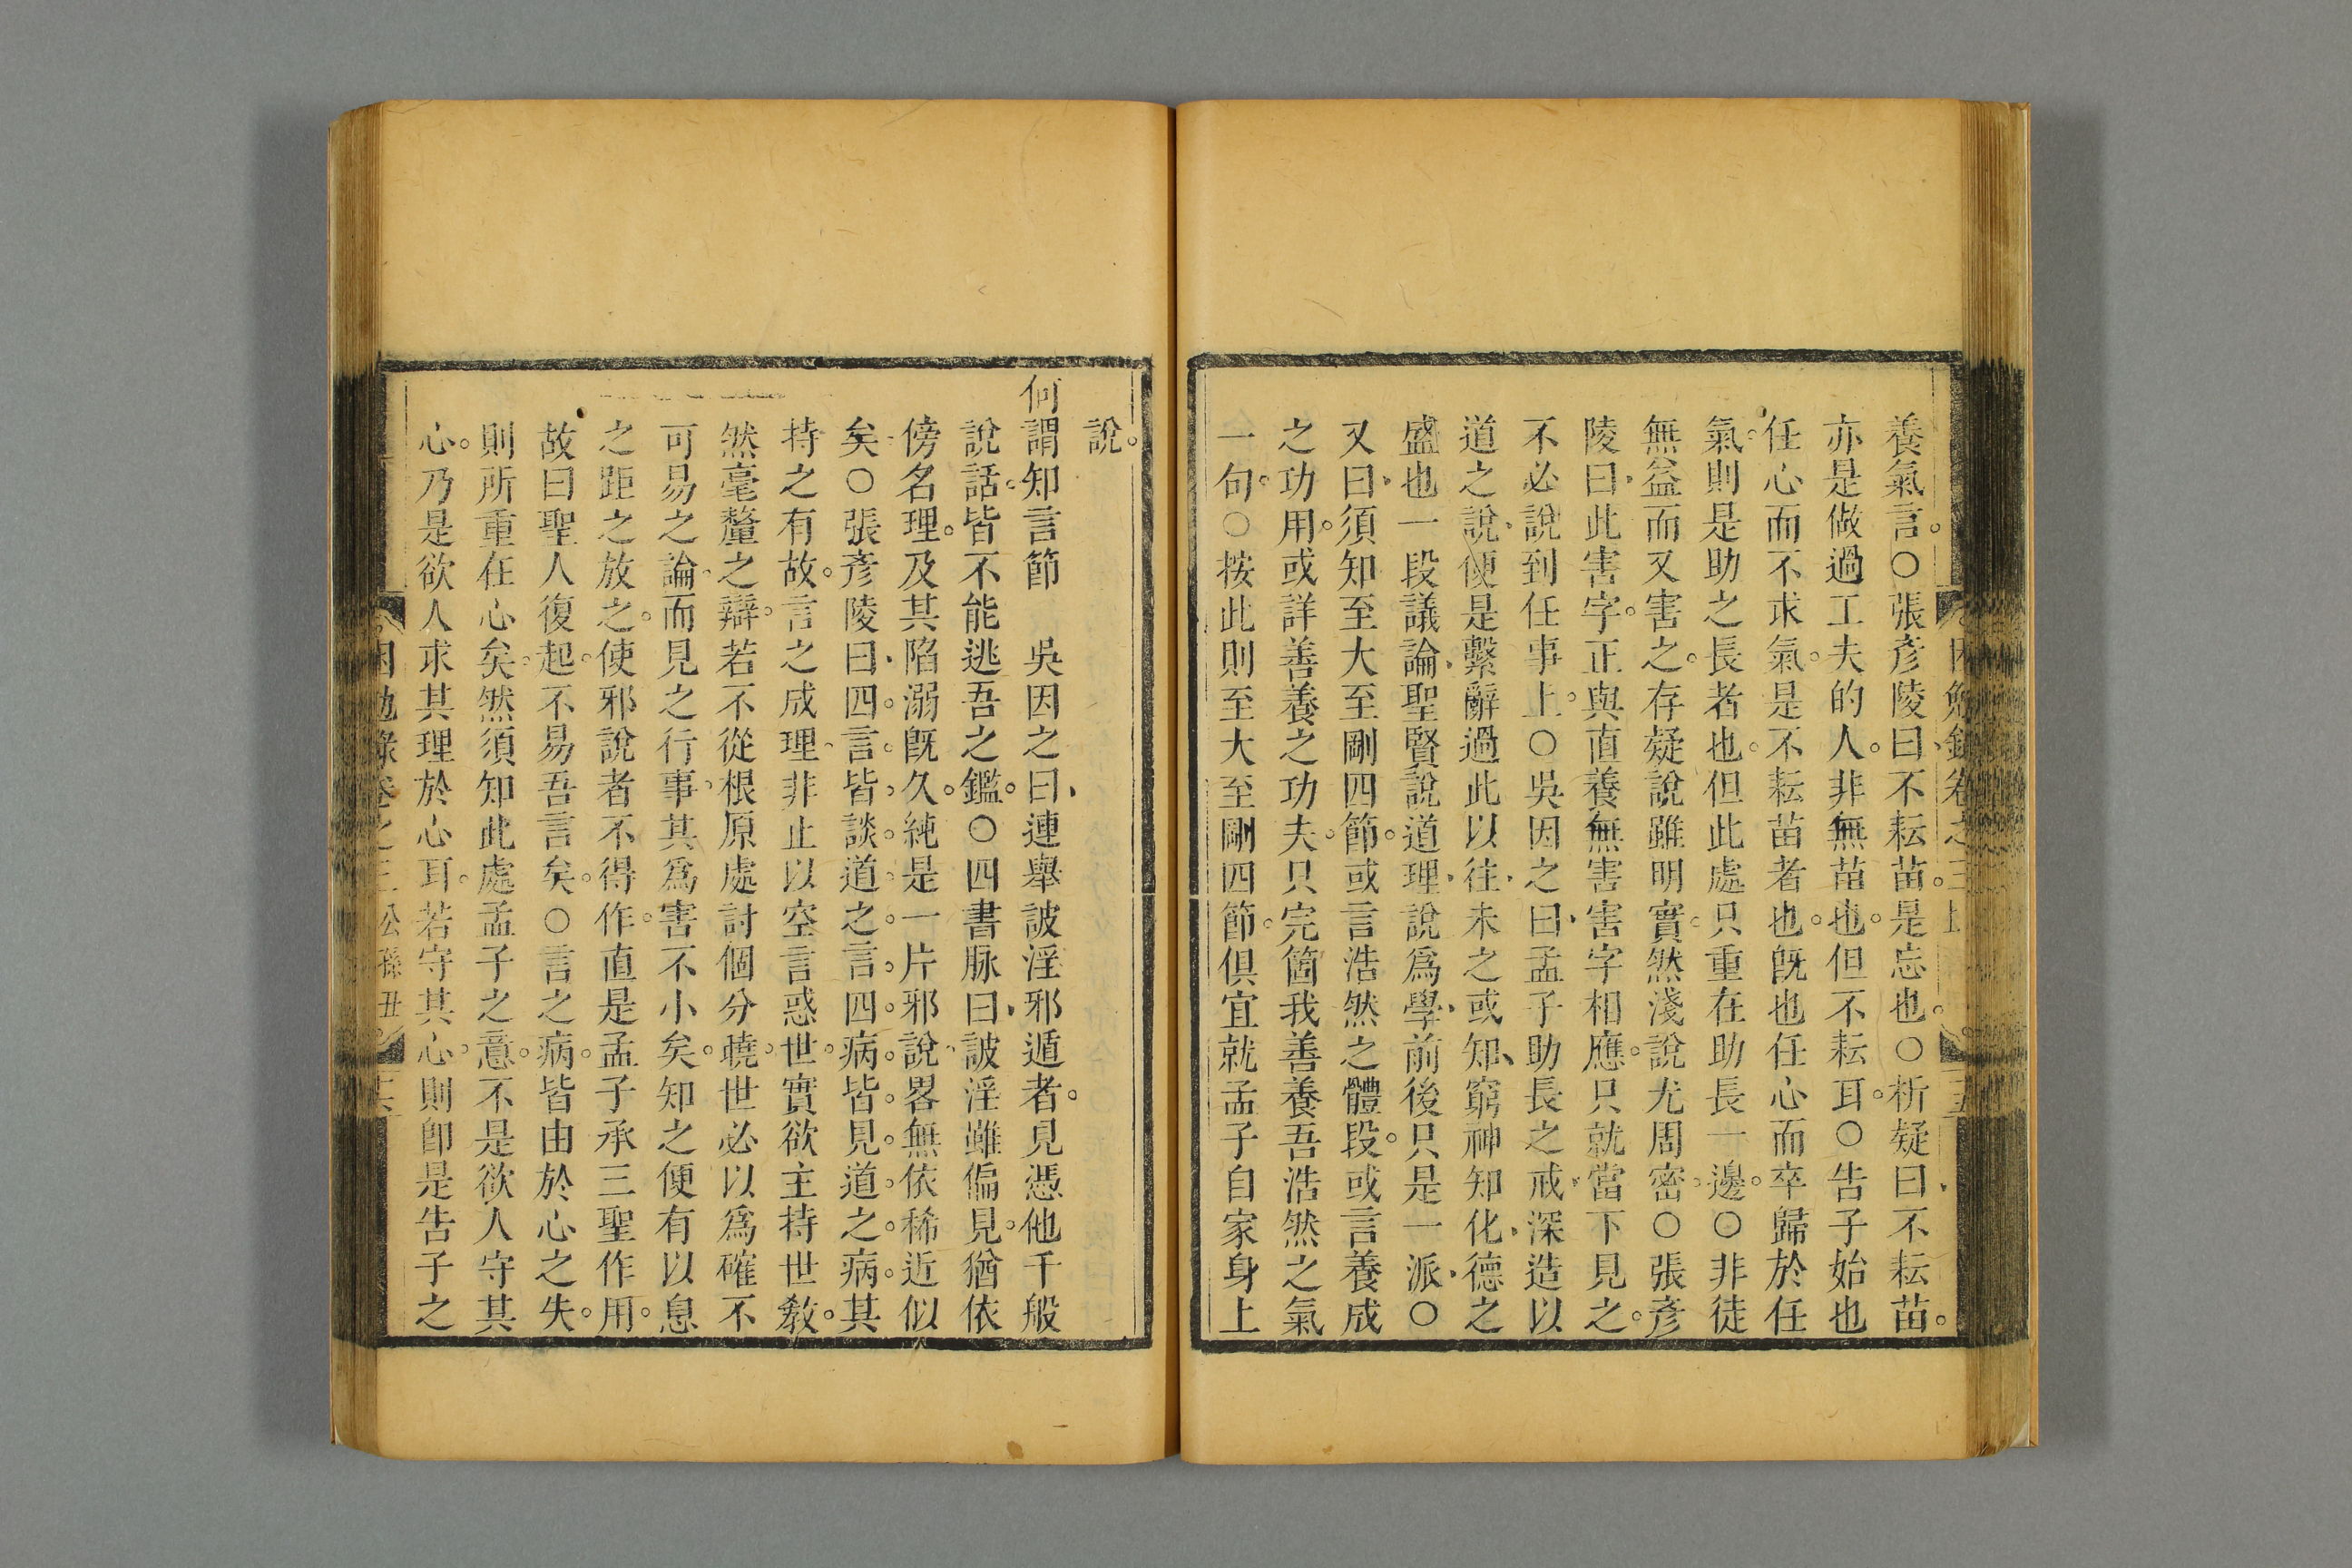 養氣言。○張彥陵曰、不耘苗。是忘也。○析疑曰、不耘苗。
亦是做過工夫的人。非無苗也。但不耘耳。○告子始也
任心而不求氣。是不耘苗者也。旣也任心而卒歸於任
氣。則是助之長者也。但此處只重在助長一邊。○非徒
無益而又害之。存疑說雖明實。然淺說尤周密。○張彥
陵曰、此害字。正與直養無害害字相應。只就當下見之。
不必說到任事上。○吳因之曰、孟子助長之戒、深造以
道之說、便是繫辭過此以往、未之或知、窮神知化、德之
盛也一段議論、聖賢說道理、說爲學、前後只是一派、○
又曰、須知至大至剛四節。或言浩然之體段。或言養成
之功用。或詳善養之功夫。只完箇我善養吾浩然之氣
一句。○按此則至大至剛四節。俱宜就孟子自家身上
說。
何謂知言節　吳因之曰、連舉詖淫邪遁者。見憑他千般
說話。皆不能逃吾之鑑。○四書脉曰、詖淫雖偏見。猶依
傍名理。及其陷溺旣久。純是一片邪說、畧無依稀近似
矣。○張彥陵曰、四言皆談道之言。四病皆見道之病。其
持之有故。言之成理、非止以空言惑世。實欲主持世敎。
然毫釐之辯。若不從根原處討個分曉。世必以爲確不
可易之論、而見之行事、其爲害不小矣。知之便有以息
之距之放之。使邪說者不得作。直是孟子承三聖作用。
故曰聖人復起。不易吾言矣。○言之病。皆由於心之失。
則所重在心矣。然須知此處孟子之意。不是欲人守其
心。乃是欲人求其理於心耳。若守其心。則卽是告子之
困勉錄卷之三 公孫丑